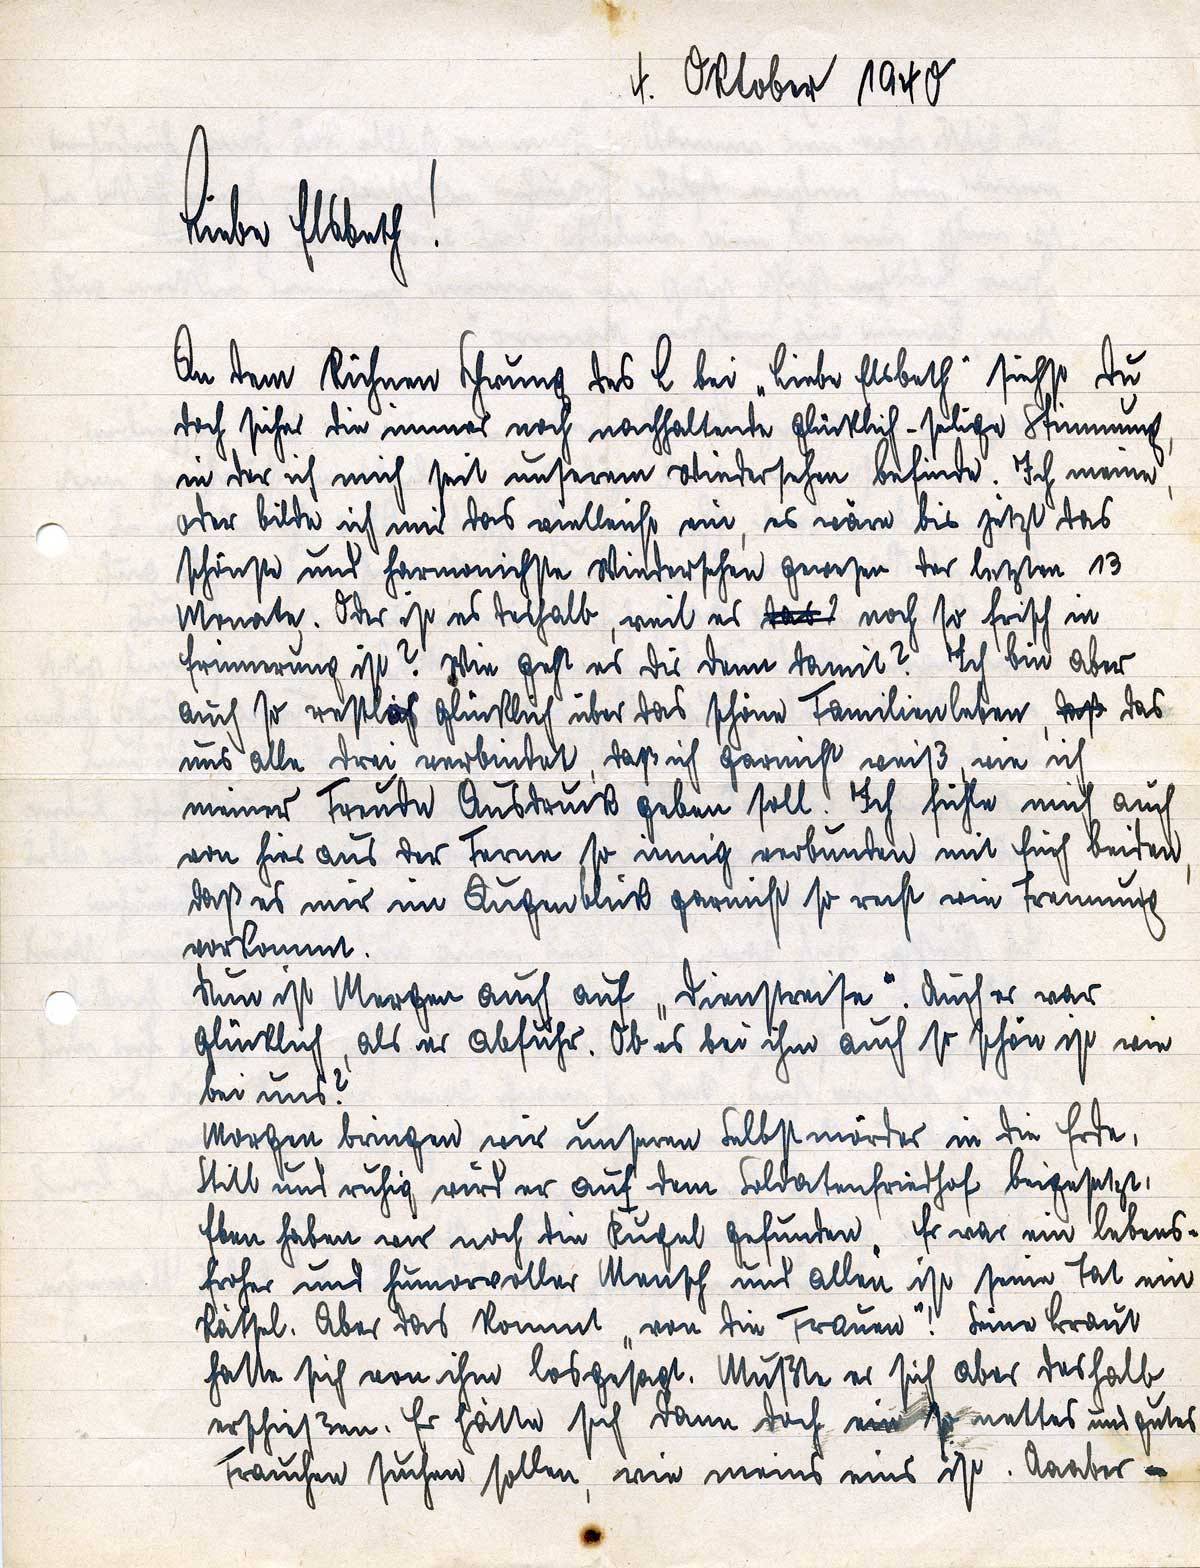 4. Oktober 1940
Liebe Elsbeth!
An dem kühnen Schwung des L bei „Liebe Elsbeth" siehst Du
doch sicher die immer noch nachhaltende glücklich-selige Stimmung,
in der ich mich seit unserem Wiedersehen befinde. Ich meine,
oder bilde ich mir das vielleicht ein, es wäre bis jetzt das
schönste und harmonischste Wiedersehen gewesen der letzten 13
Monate. Oder ist es deshalb, weil es das noch so frisch in
Erinnerung ist? Wie geht es Dir denn damit? Ich bin aber
auch so restlos glücklich über das schöne Familienleben, daß das
uns alle drei verbindet, daß ich garnicht weiß, wie ich
meiner Freude Ausdruck geben soll. Ich fühle mich auch
von hier aus der Ferne so innig verbunden mit Euch beiden,
daß es mir im Augenblick garnicht so recht wie Trennung
vorkommt.
Nun ist Mergen auch auf „Dienstreise". Auch er war
glücklich, als er abfuhr. Ob es bei ihm auch so schön ist wie
bei uns?
Morgen bringen wir unseren Selbstmörder in die Erde.
Still und ruhig wird er auf dem Soldatenfriedhof beigesetzt.
Eben haben wir noch die Kugel gefunden. Er war ein lebens-
froher und humorvoller Mensch und allen ist seine Tat ein
Rätsel. Aber das kommt „von die Frauen"! Seine Braut
hatte sich von ihm losgesagt. Mußte er sich aber deshalb
erschießen. Er hätte sich dann doch ein so nettes und gutes
Frauchen suchen sollen, wie meins eins ist. Aaaber -